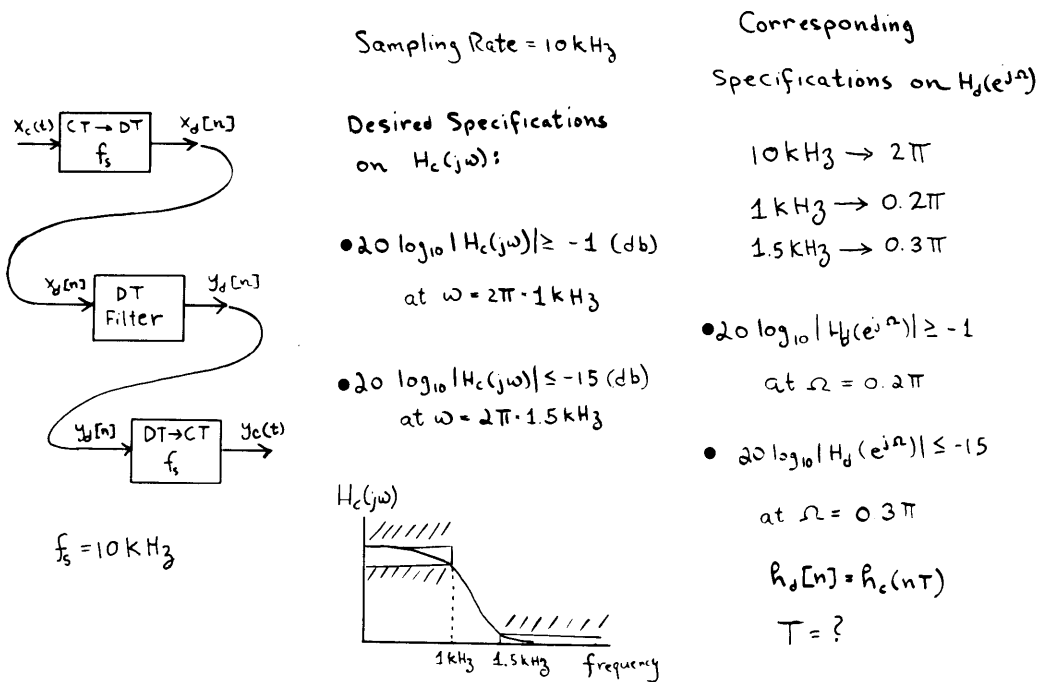 x_c(t)
CT → DT
f_s
x_d[n]
x_d[n]
DT
Filter
y_d[n]
y_d[n]
DT→CT
f_s
y_c(t)
f_s = 10 kHz
Sampling Rate = 10 kHz
Desired Specifications
on H_c(jω):
• 20 log₁₀ |H_c(jω)| ≥ -1 (db)
at ω = 2π · 1 kHz
• 20 log₁₀ |H_c(jω)| ≤ -15 (db)
at ω = 2π · 1.5 kHz
H_c(jω)
1 kHz 1.5 kHz frequency
Corresponding
Specifications on H_d(e^{jΩ})
10 kHz → 2π
1 kHz → 0.2π
1.5 kHz → 0.3π
• 20 log₁₀ |H_d(e^{jΩ})| ≥ -1
at Ω = 0.2π
• 20 log₁₀ |H_d(e^{jΩ})| ≤ -15
at Ω = 0.3π
h_d[n] = h_c(nT)
T = ?